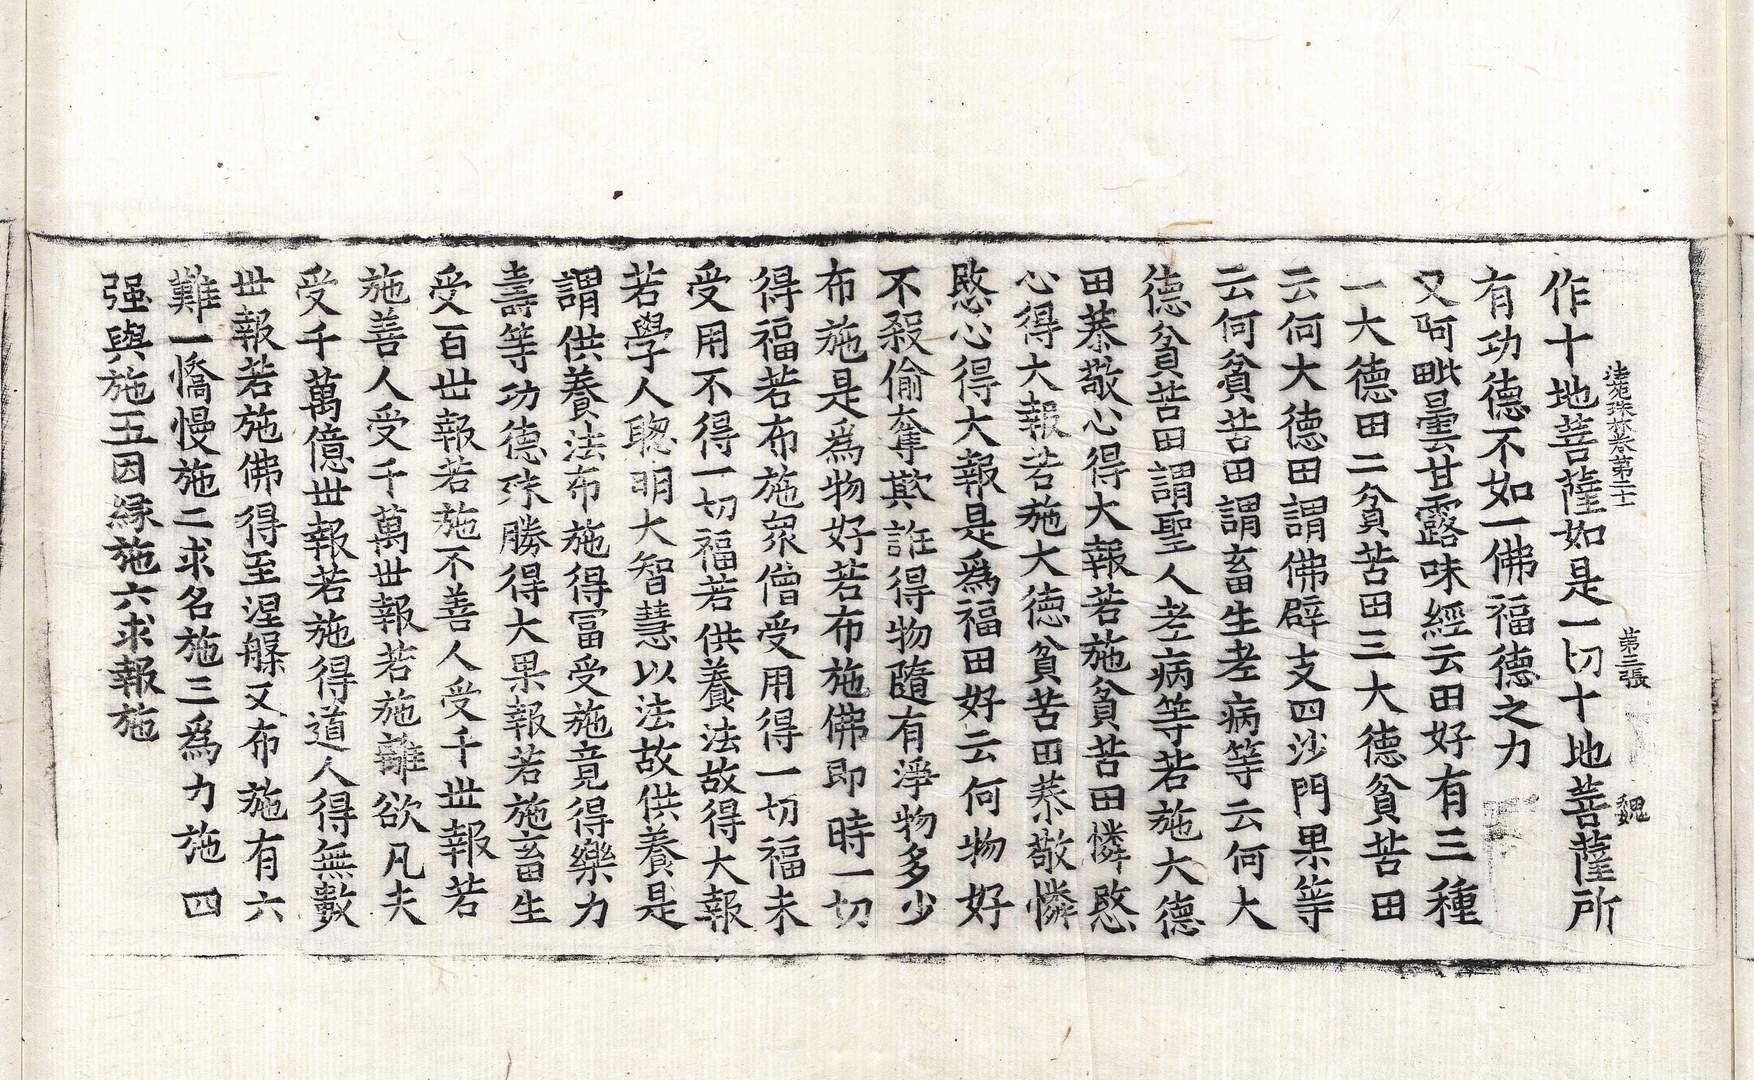 法苑珠林卷第二十一 第三張 魏
作十地菩薩如是一切十地菩薩所
有功德不如一佛福德之力
又阿毗曇甘露味經云田好有三種
一大德田二貧苦田三大德貧苦田
云何大德田謂佛辟支四沙門果等
云何貧苦田謂畜生老病等云何大
德貧苦田謂聖人老病等若施大德
田恭敬心得大報若施貧苦田憐愍
心得大報若施大德貧苦田恭敬憐
愍心得大報是為福田好云何物好
不殺偷奪欺誑得物隨有淨物多少
布施是為物好若布施佛即時一切
得福若布施衆僧受用得一切福未
受用不得一切福若供養法故得大報
若學人聰明大智慧以法故供養是
謂供養法布施得冨受施竟得樂力
壽等功德殊勝得大果報若施畜生
受百世報若施不善人受千世報若
施善人受千萬世報若施離欲凡夫
受千萬億世報若施得道人得無數
世報若施佛得至涅槃又布施有六
難一憍慢施二求名施三為力施四
强與施五因緣施六求報施